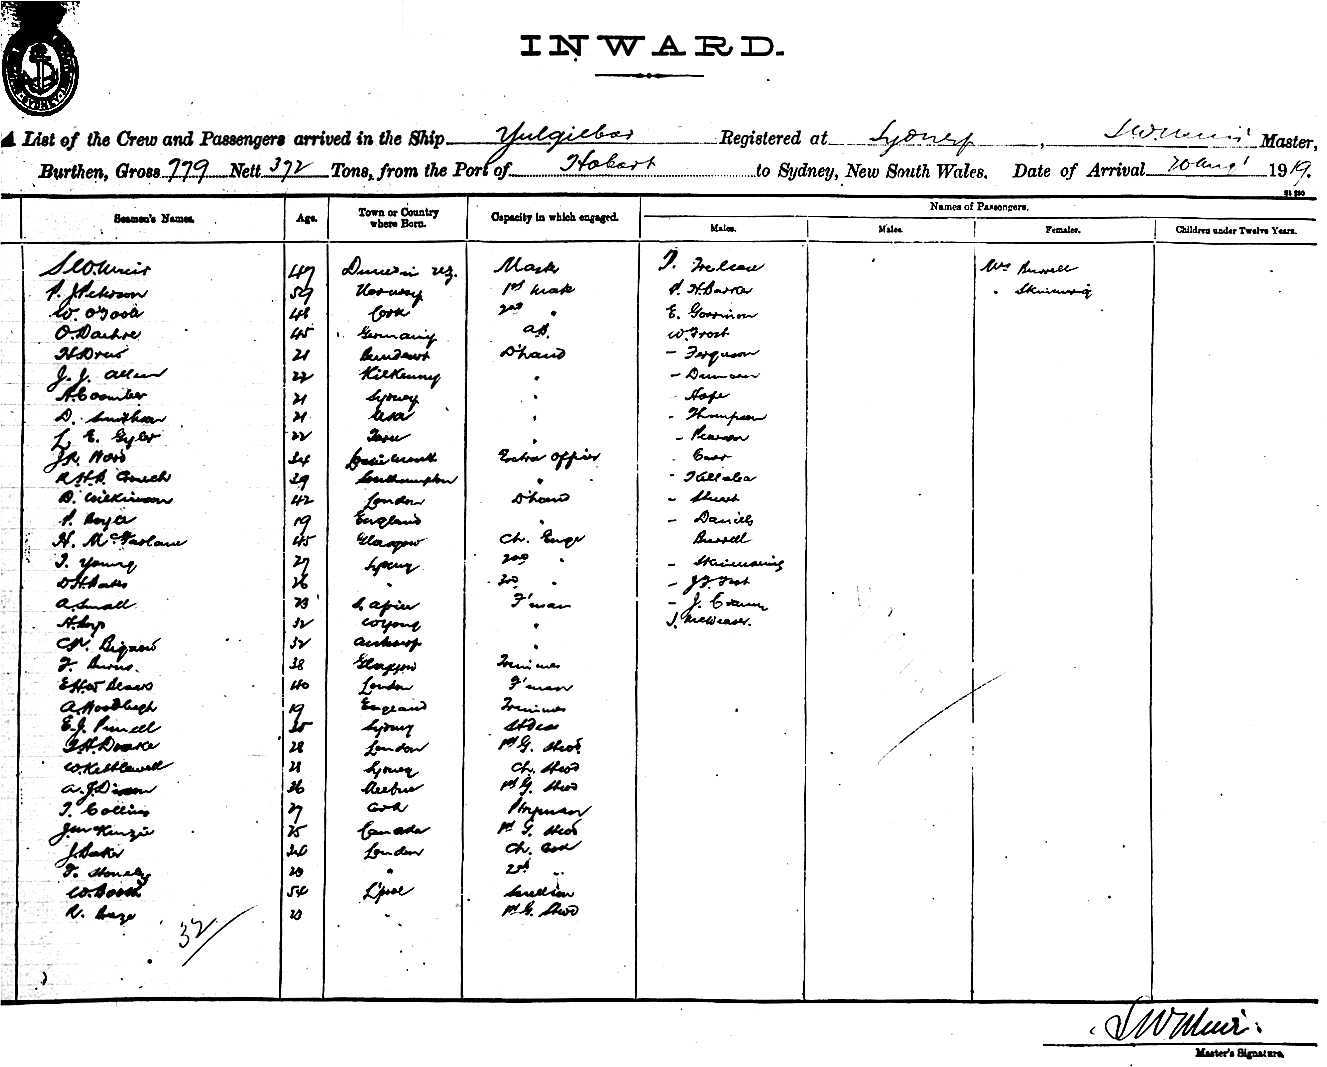 INWARD.
SYDNEY
A List of the Crew and Passengers arrived in the Ship Yulgilbar Registered at Sydney, S W Muir Master,
Burthen, Gross 779 Nett 372 Tons, from the Port of Hobart to Sydney, New South Wales. Date of Arrival 20 Augt 1919.
Seamen's Names. Age. Town or Country where Born. Capacity in which engaged. Names of Passengers.
Males. Males. Females. Children under Twelve Years.
S W Muir 47 Dunedin NZ. Mast J. Mrs Burrell
P. J. Peterson 59 Norway 1st mate P. H. Barker " Skimming
W. O'Toole 48 Cork 2nd " E. Garrison
O. 45 Germany AB. W Frost
H Drew 21 D'hand - Ferguson
J. J. Allen 22 Kilkenny " - Duncan
A Coomber 21 Sydney " - Hope
D. 21 USA " - Thompson
L. E. Gyler 22 Taree " - Pearson
J. R. Ward 34 Extra officer - Carr
R. H. B. Crouch 39 Southampton " -
B. Wilkinson 42 London D'hand - Stuart
P. Boyle 19 England " - Daniels
H. McFarlane 45 Glasgow Ch. Engr Burrell
J. Young 27 Sydney 2nd " - Skimming
D H Bates 26 " 3rd " - J J
A. Small 23 S. Africa F'man - J.
A. 32 " J.
32 Antwerp "
J. Burns. 38 Glasgow Trimmer
40 London F'man
A. Woodleigh 19 England Trimmer
E. J. Purnell 35 Sydney Stdess
J. H. Drake 28 London 1st G. Stwd
W. Kettlewell 28 Sydney Ch. Stwd
A. J. Dixon 26 Melbne 1st G. Stwd
J. Collins 27 Cork P'tryman
J McKenzie 25 Canada 1st G. Stwd
J. Baker 34 London Ch. Cook
T. 20 " 2nd "
W. Booth 54 L'pool Scullion
R. 23 1st G. Stwd
32
S W Muir
Master's Signature.